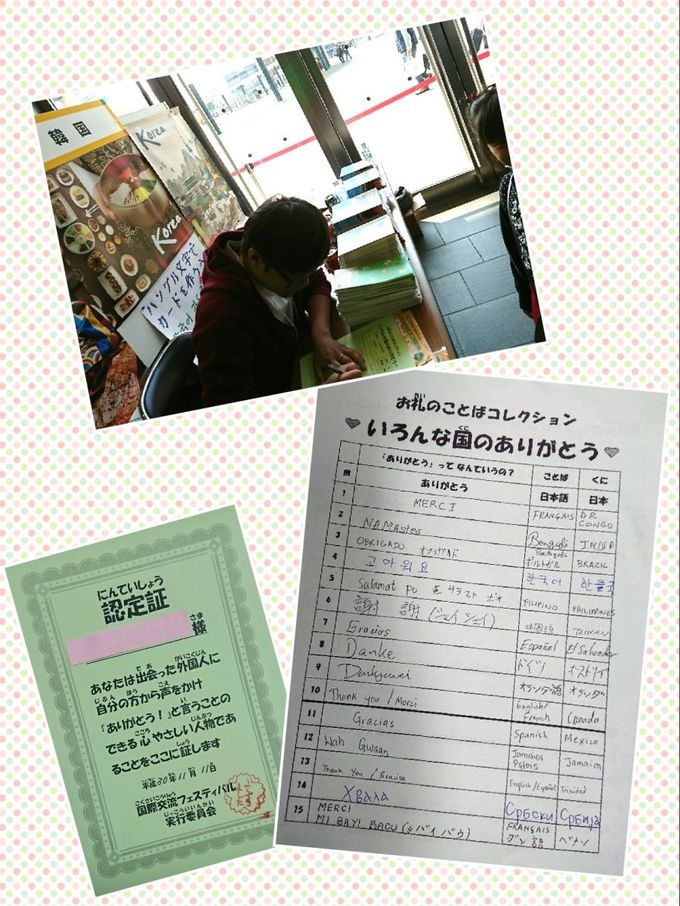 韓国
Korea
Korea
ハングル文字で
カードを作ろう
お礼のことばコレクション
いろんな国のありがとう
「ありがとう」って なんていうの? ことば くに
例 ありがとう 日本語 日本
1 MERCI FRANÇAIS DR CONGO
2 NAMAstee Bengali INDIA
3 OBRIGADO オブリガド Português ポルトガル BRAZIL
4 고마워요 한국어 한국
5 Salamat po サラマト ポ FILIPINO PHILIPPINES
6 謝謝 (シェイシェイ) 中国語 TAIWAN
7 Gracias Español El Salvador
8 Danke ドイツ オーストリア
9 オランダ語 オランダ
10 Thank you / Merci English/French Canada
11 Gracias Spanish Mexico
12 Wah Gwaan Jamaican Patois Jamaica
13 Thank You / Gracias English/Español Trinidad
14 Хвала Српски Србија
15 MERCI FRANÇAIS
MI BAYI BACU (ミバイバウ) グン語 ベナン
にんていしょう
認定証
さま
様
であ がいこくじん
あなたは出会った外国人に
じぶん ほう こえ
自分の方から声をかけ
い
「ありがとう!」と言うことの
こころ じんぶつ
できる心やさしい人物であ
しょう
ることをここに証します
平成30年11月11日
こくさいこうりゅう
国際交流フェスティバル
じっこういいんかい
実行委員会